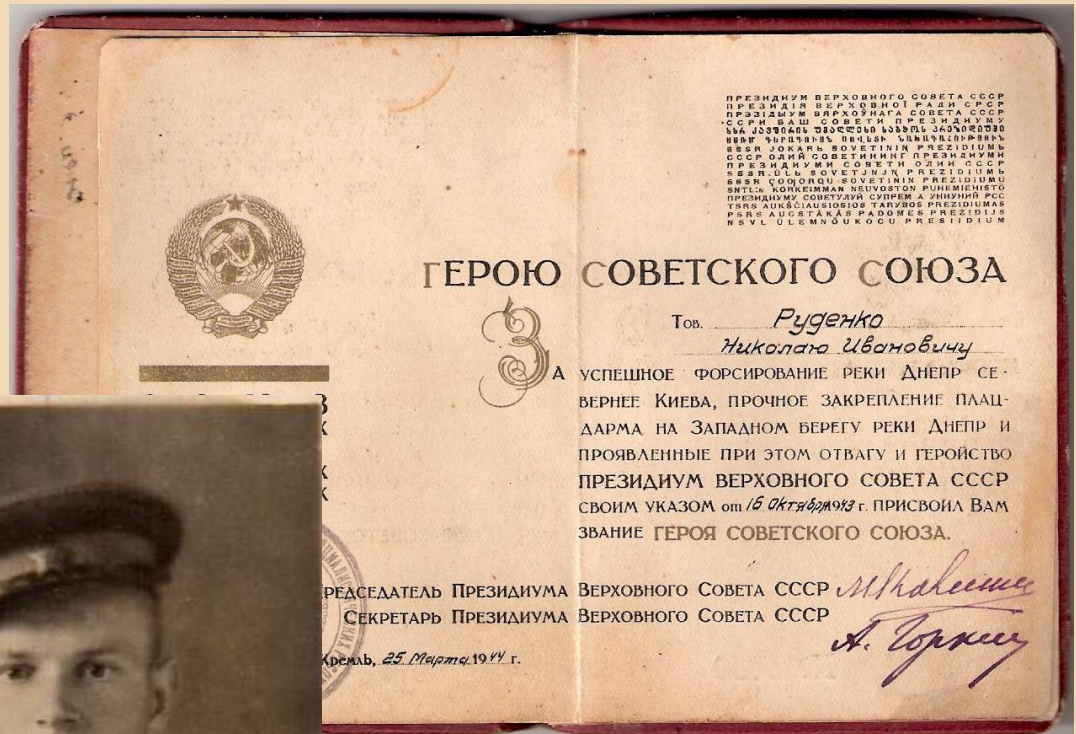 ПРЕЗИДИУМ ВЕРХОВНОГО СОВЕТА СССР
ПРЕЗИДІЯ ВЕРХОВНОЇ РАДИ СРСР
ПРЭЗІДЫУМ ВЯРХОЎНАГА СОВЕТА СССР
ССРИ БАШ СОВЕТИ ПРЕЗИДИУМУ
SSSR JOKARЬ SOVETININ PREZIDIUMЬ
СССР ОЛИЙ СОВЕТИНИНГ ПРЕЗИДИУМИ
ПРЕЗИДИУМИ СОВЕТИ ОЛИИ СССР
ПРЕЗИДИУМУ СОВЕТУЛУЙ СУПРЕМ А УНИУНИЙ РСС
TSRS AUKŠČIAUSIOSIOS TARYBOS PREZIDIUMAS
PSRS AUGSTĀKĀS PADOMES PREZIDIJS
NSVL ÜLEMNÕUKOGU PRESIIDIUM
ГЕРОЮ СОВЕТСКОГО СОЮЗА
Тов. Руденко
Николаю Ивановичу
ЗА УСПЕШНОЕ ФОРСИРОВАНИЕ РЕКИ ДНЕПР СЕ-
ВЕРНЕЕ КИЕВА, ПРОЧНОЕ ЗАКРЕПЛЕНИЕ ПЛАЦ-
ДАРМА НА ЗАПАДНОМ БЕРЕГУ РЕКИ ДНЕПР И
ПРОЯВЛЕННЫЕ ПРИ ЭТОМ ОТВАГУ И ГЕРОЙСТВО
ПРЕЗИДИУМ ВЕРХОВНОГО СОВЕТА СССР
СВОИМ УКАЗОМ от 16 Октября 1943 г. ПРИСВОИЛ ВАМ
ЗВАНИЕ ГЕРОЯ СОВЕТСКОГО СОЮЗА.
РЕДСЕДАТЕЛЬ ПРЕЗИДИУМА ВЕРХОВНОГО СОВЕТА СССР М Калинин
СЕКРЕТАРЬ ПРЕЗИДИУМА ВЕРХОВНОГО СОВЕТА СССР
А. Горкин
Кремль, 25 Марта 1944 г.